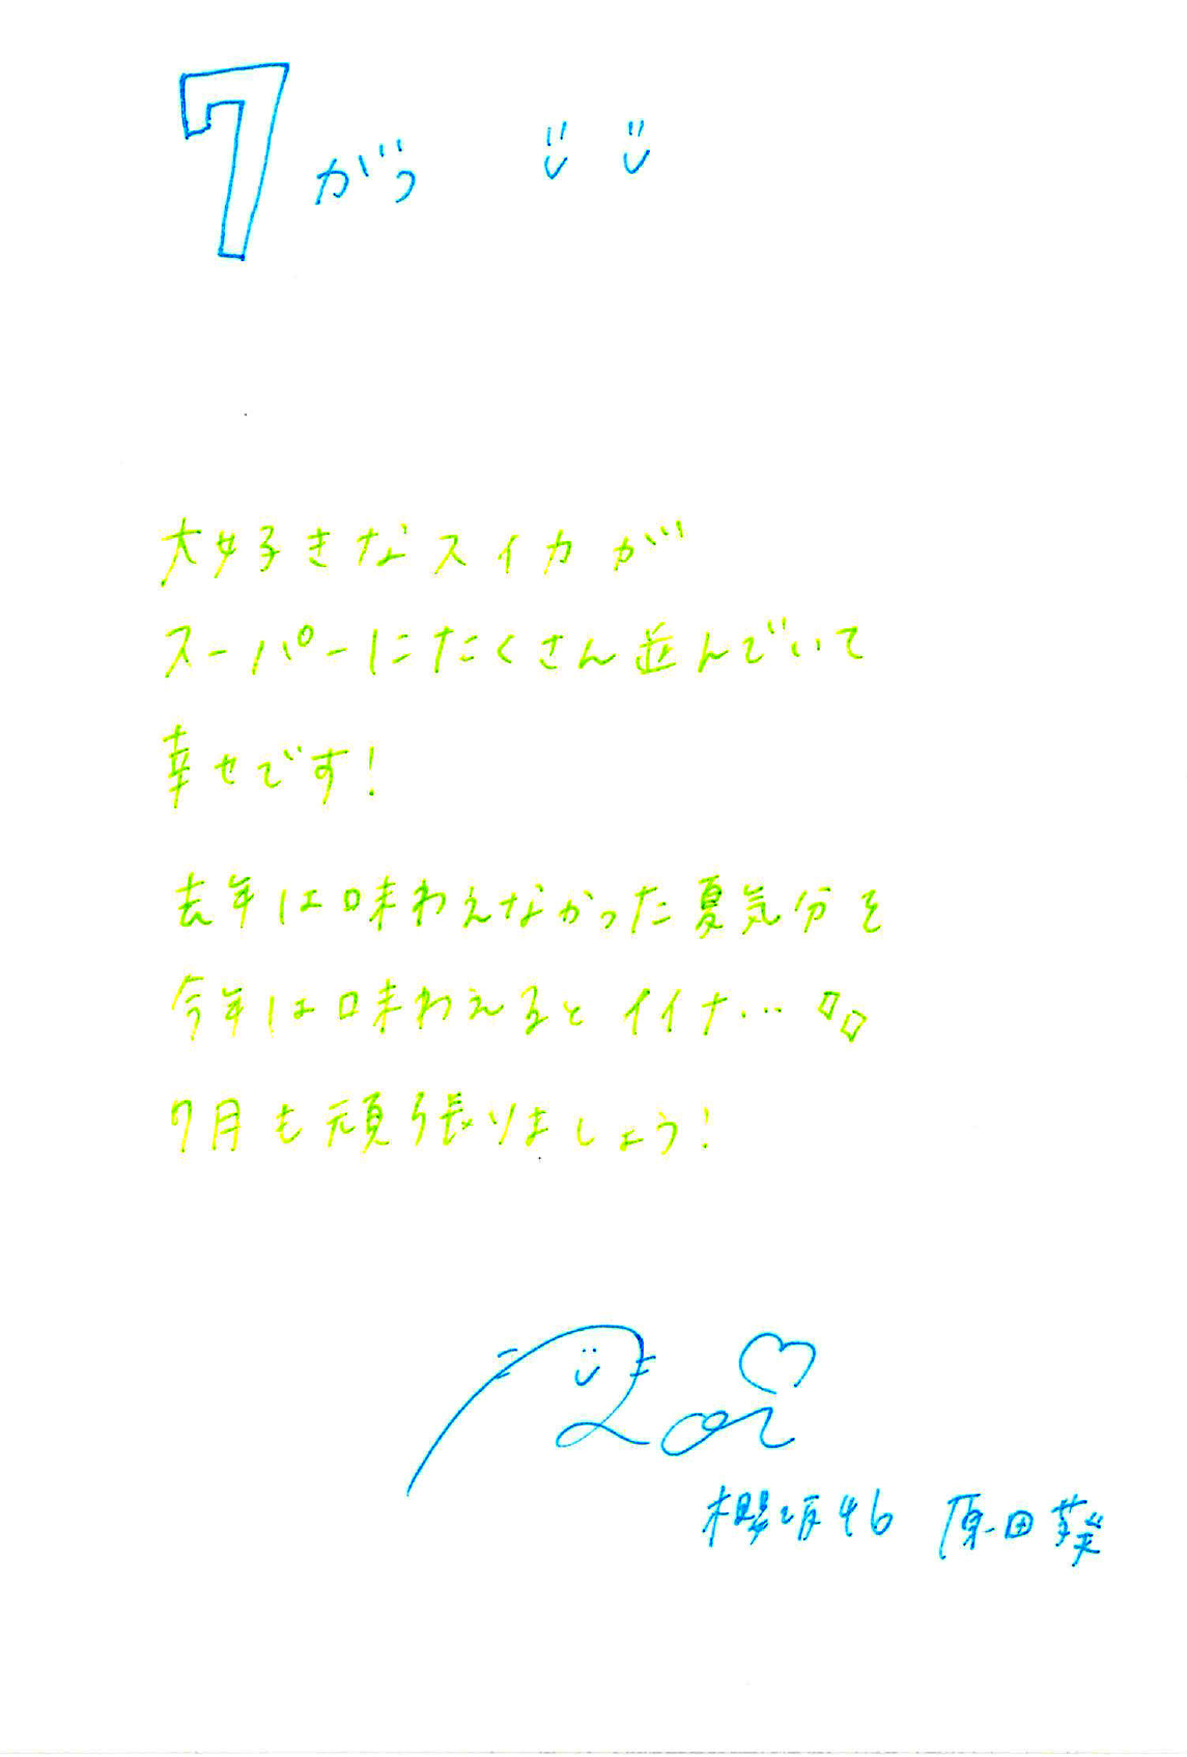 7がつ
大好きなスイカが
スーパーにたくさん並んでいて
幸せです!
去年は味わえなかった夏気分を
今年は味わえるとイイナ…
7月も頑張りましょう!
櫻坂46 原田葵